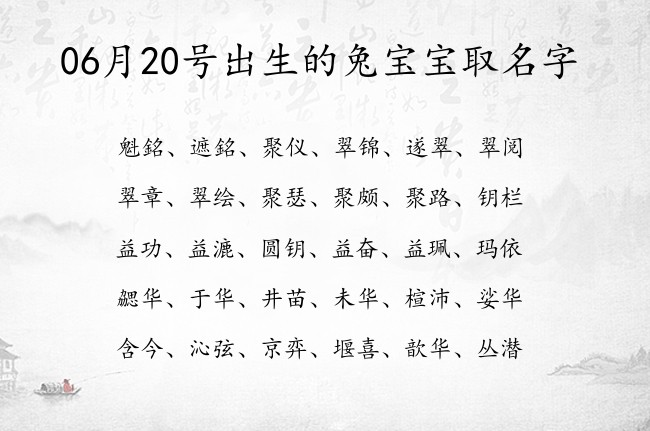 06月20号出生的兔宝宝取名字
魁銘、遮銘、聚仪、翠锦、遂翠、翠阅
翠章、翠绘、聚瑟、聚颇、聚路、钥栏
益功、益漉、圆钥、益奋、益珮、玛依
勰华、于华、井苗、未华、楦沛、娑华
含今、沁弦、京弈、堰喜、歆华、丛潜